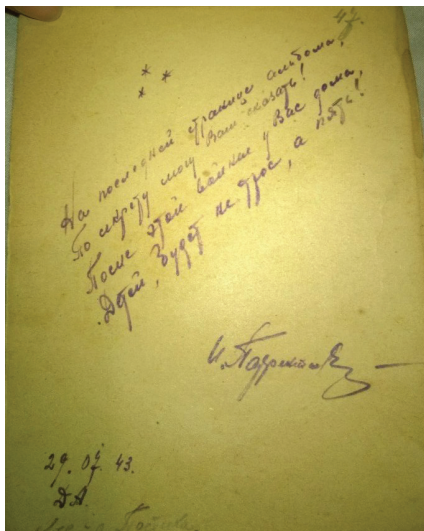 * * *
На последней странице альбома,
По секрету могу Вам сказать!
После этой войны у Вас дома,
Детей, будет не трое, а пять!
29. 07. 43.
Д.А.